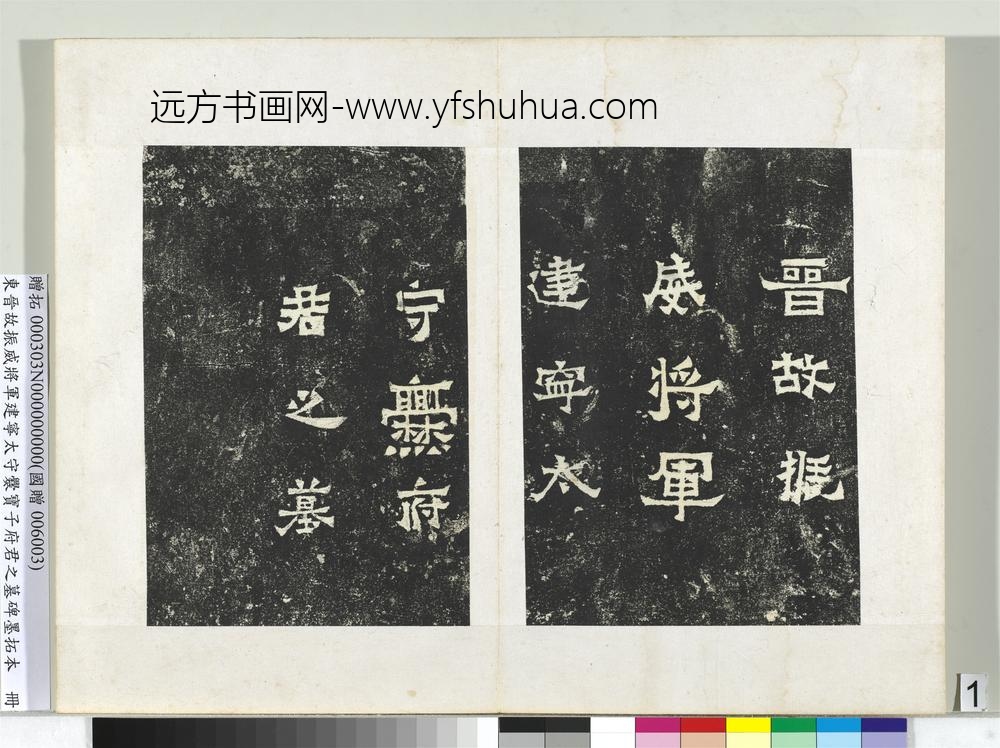 远方书画网-www.yfshuhua.com
晉故振
威將軍
建寧太
守爨府
君之墓
贈拓 000303N000000000(國贈 006003)
東晉故振威將軍建寧太守爨寶子府君之墓碑墨拓本 冊
1